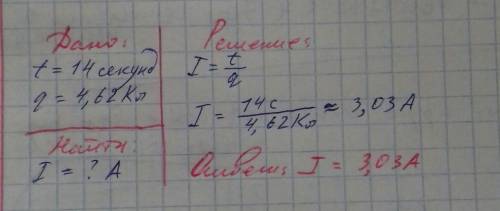 Дано:
t = 14 секунд
q = 4,62 Кл
Найти:
I = ? А
Решение:
I = t/q
I = 14 с / 4,62 Кл ≈ 3,03 А
Ответ: I = 3,03 А